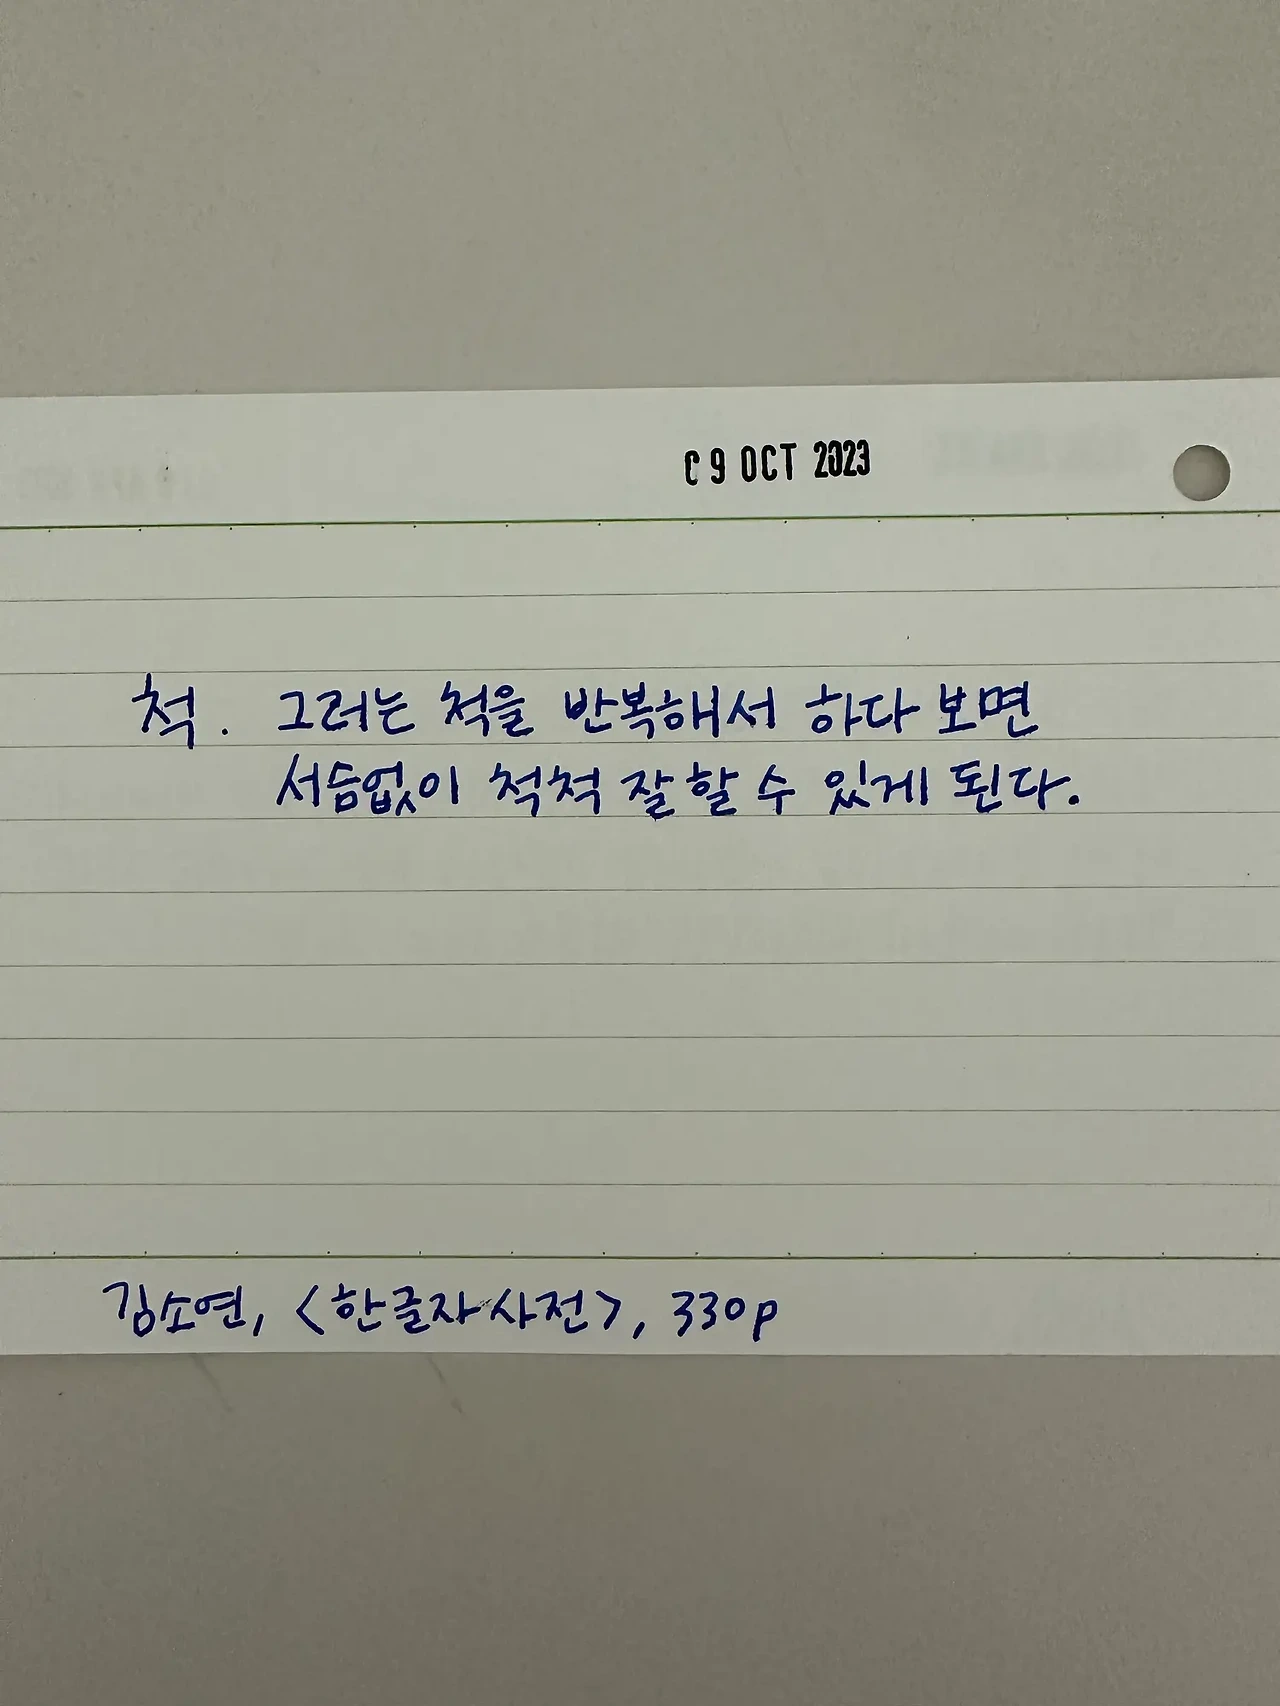 09 OCT 2023
척. 그러는 척을 반복해서 하다 보면
서슴없이 척척 잘할 수 있게 된다.
김소연, <한글자사전>, 330p